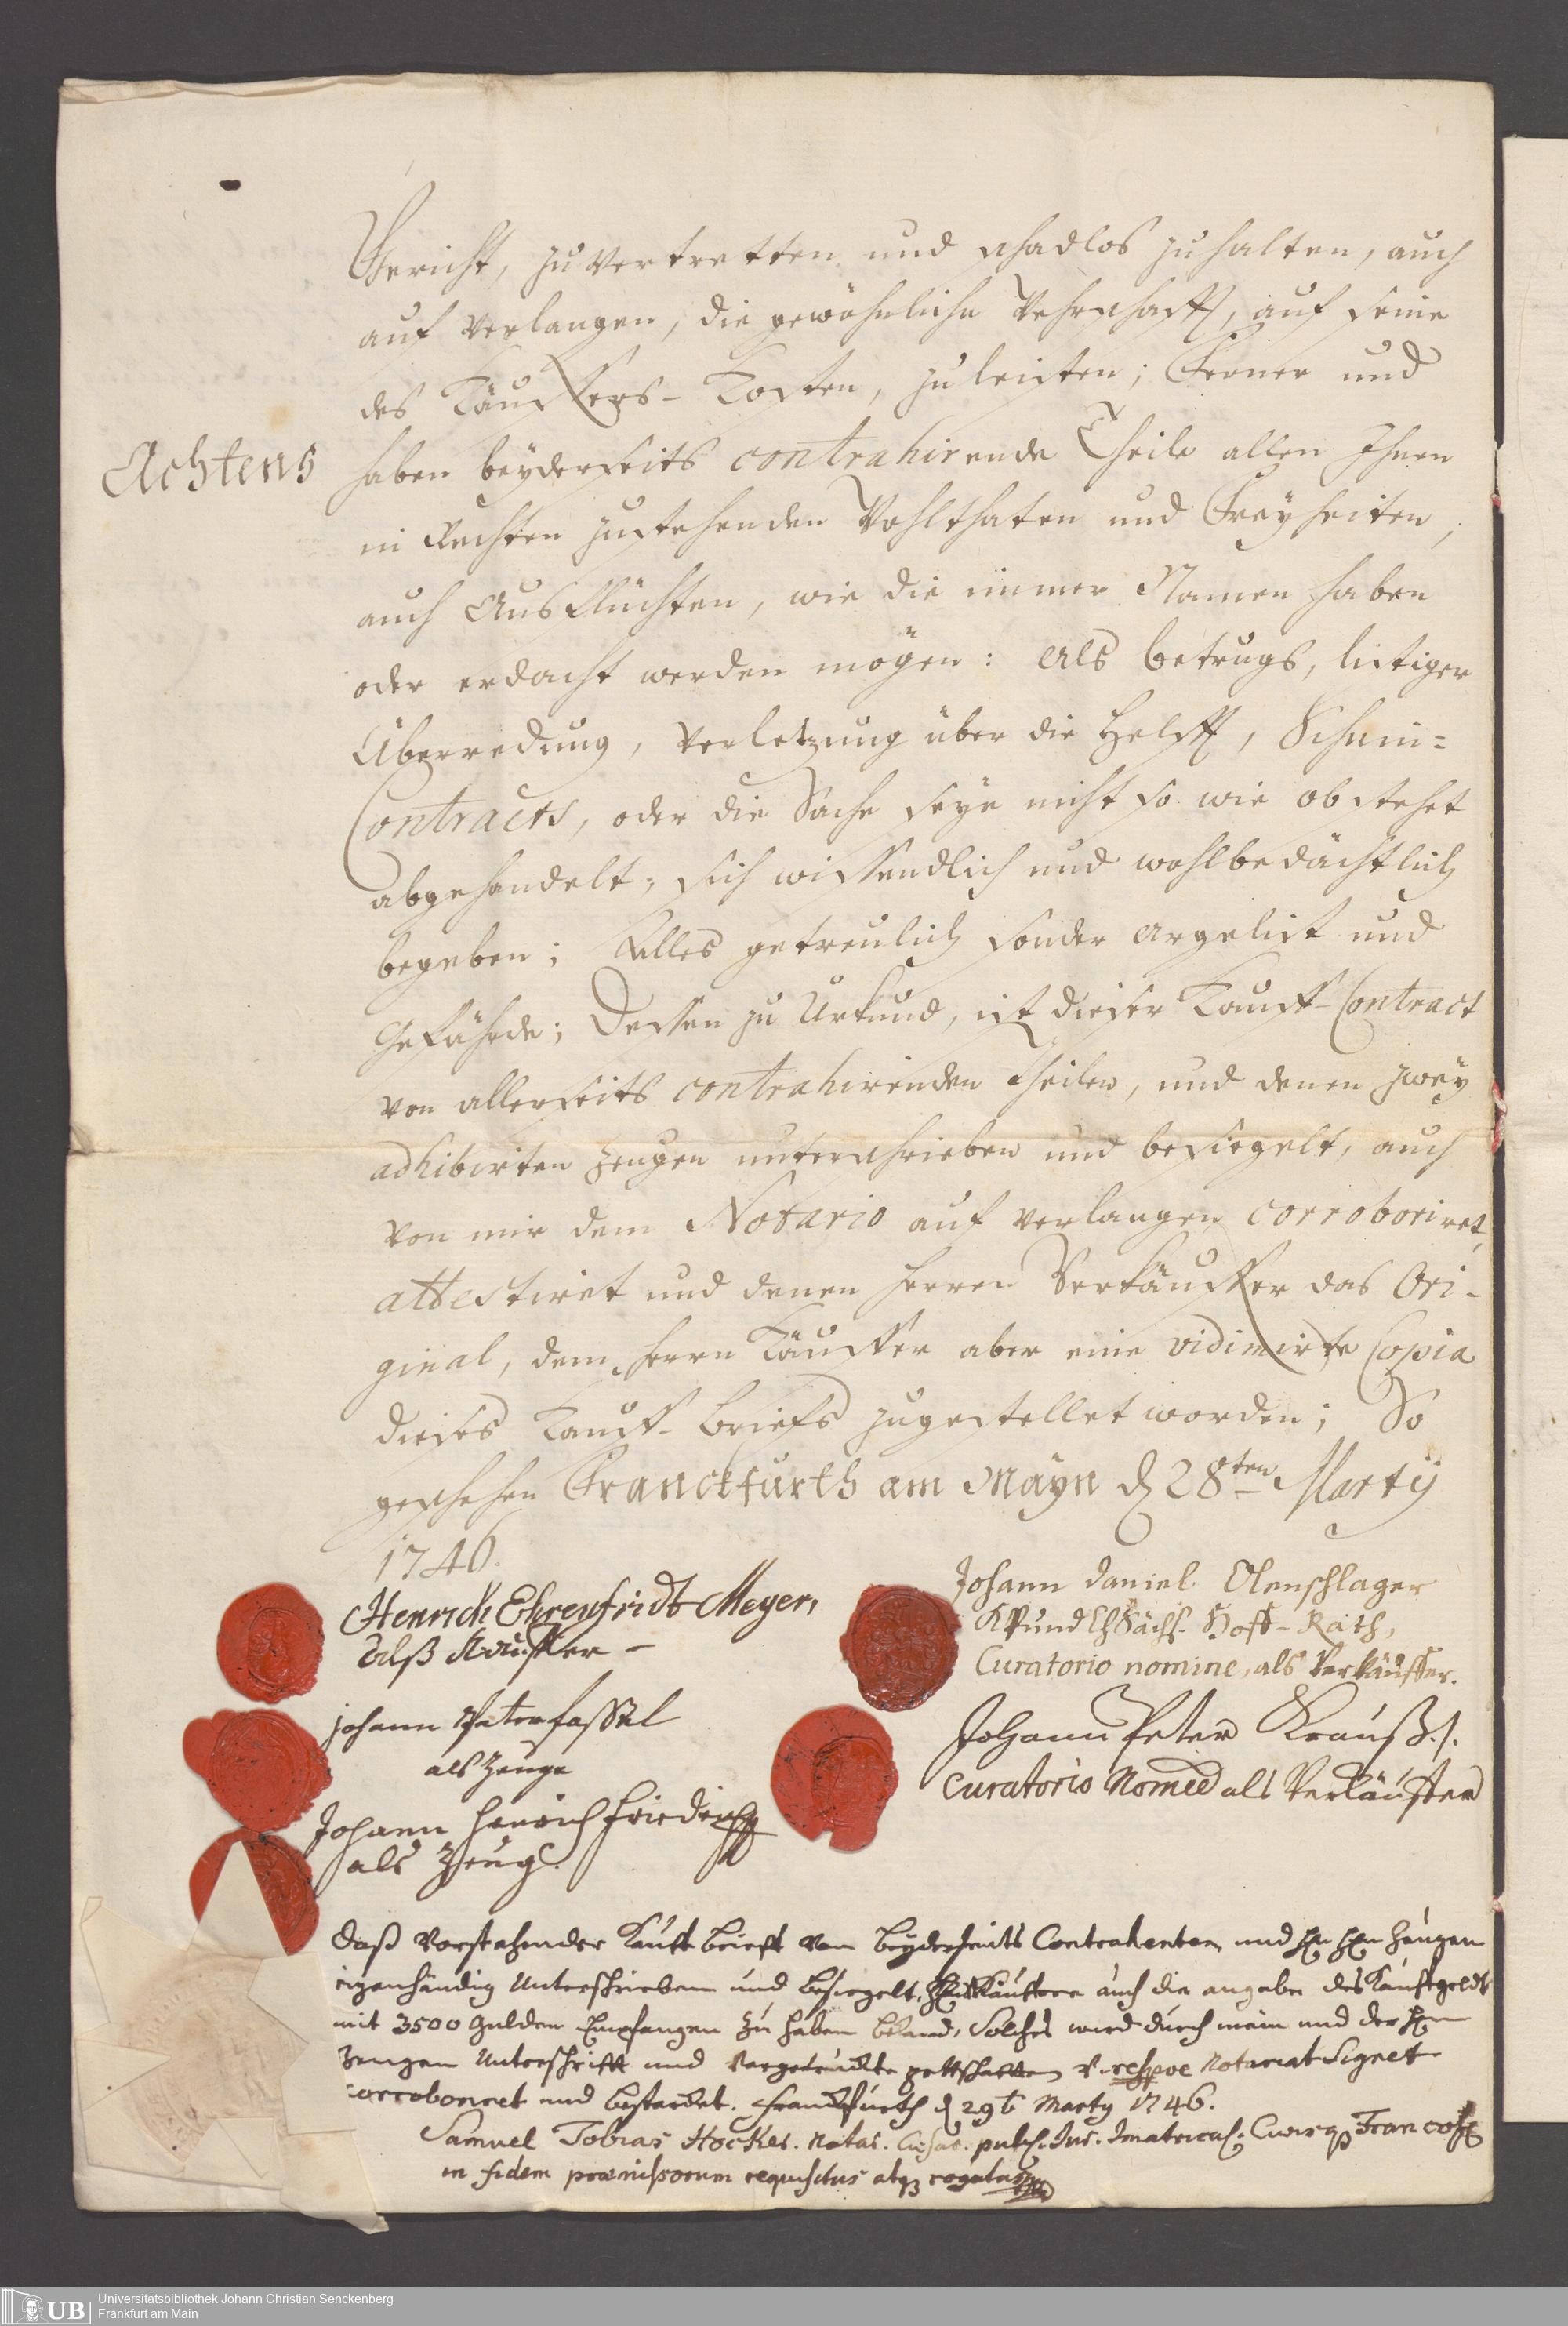 Gericht, zu vertretten und schadlos zu halten, auch
auf verlangen, die gewöhnliche Wehrschafft, auf seine
des Käuffers-Kosten, zu leisten; Ferner und
Achtens haben beyderseits contrahirende Theile allen Ihnen
in Rechten zustehenden Wohlthaten und Freyheiten,
auch Ausflüchten, wie die immer Namen haben
oder erdacht werden mögen: Als betrugs, listiger
Überredung, Verletzung über die Helfft, Schein=
Contracts, oder die Sache seye nicht so wie obstehet
abgehandelt, sich wissendlich und wohlbedächtlich
begeben; Alles getreulich sonder Argelist und
Gefährde; Dessen zu Urkund, ist dieser Kauff-Contract
von allerseits contrahirenden Theilen, und denen zwey
adhibirten Zeugen unterschrieben und besiegelt, auch
von mir dem Notario auf verlangen corroboriret,
attestiret und denen Herren Verkäuffer das Ori-
ginal, dem Herrn Käuffer aber eine vidimirte Copia
dieses Kauff-Briefs zugestellet worden; So
geschehen Franckfurth am Mayn d 28ten Martÿ
1746.
Henrich Ehrenfridt Meyer,
Alß Kauffer -
Johann Daniel Olenschlager
Sächs. Hoff-Rath,
Curatorio nomine, als Verkäuffer.
johann Peter fassel
als Zeuge
Johann Peter Krauß.
Curatorio Nomine als Verkäuffer
Johann Henrich Friederich
als Zeug.
Daß Vorstehender Kauff brieff von beyderseits Contrahenten und Hen Hen Zeugen
eigenhändig Unterschrieben und besiegelt, Verkäuffere auch die angabe des Kauffgelds
mit 3500 Gulden Empfangen zu haben bekand, Solches wird durch mein und der Hen
Zeugen Unterschrifft und Vorgedruckte pettschafften V. respve Notariat Signet
corroboriret und bestärcket. Franckfurth d 29t Marty 1746.
Samuel Tobias Hocker. Notar. Cæsar. publ. Jur. Imatricul. Francof
in fidem præmissorum requisitus atq rogatus
Universitätsbibliothek Johann Christian Senckenberg
Frankfurt am Main
UB